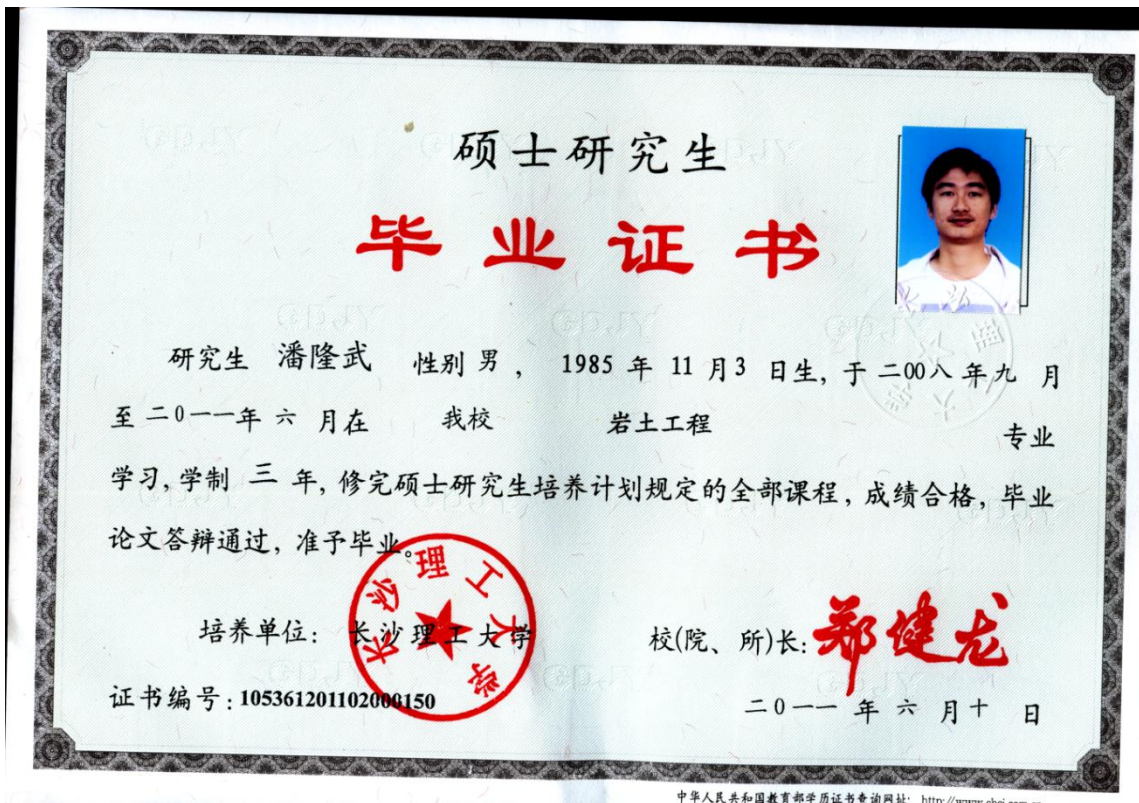 硕士研究生
毕业证书
研究生 潘隆武 性别 男 , 1985 年 11 月 3 日生, 于 二00八 年 九 月
至 二0一一年 六 月在 我校 岩土工程 专业
学习, 学制 三 年, 修完硕士研究生培养计划规定的全部课程, 成绩合格, 毕业
论文答辩通过, 准予毕业。
长沙理工大学
培养单位: 长沙理工大学 校(院、所)长: 郑健龙
证书编号: 105361201102000150 二0一一 年 六 月 十 日
中华人民共和国教育部学历证书查询网址: